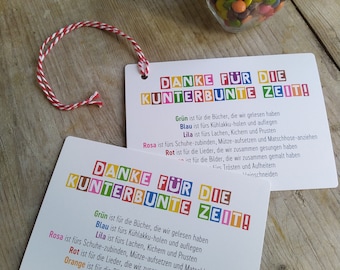 DANKE FÜR DIE
KUNTERBUNTE ZEIT!
Grün ist für die Bücher, die wir gelesen haben
Blau ist fürs Kühlakku-holen und auflegen
Lila ist fürs Lachen, Kichern und Prusten
Rosa ist fürs Schuhe-zubinden, Mütze-aufsetzen und Matschhose-anziehen
Rot ist für die Lieder, die wir zusammen gesungen haben
ist für die Bilder, die wir zusammen gemalt haben
fürs Trösten und Aufheitern
DANKE FÜR DIE
KUNTERBUNTE ZEIT!
Grün ist für die Bücher, die wir gelesen haben
Blau ist fürs Kühlakku-holen und auflegen
Lila ist fürs Lachen, Kichern und Prusten
Rosa ist fürs Schuhe-zubinden, Mütze-aufsetzen und
Rot ist für die Lieder, die wir zusammen
Orange ist für die